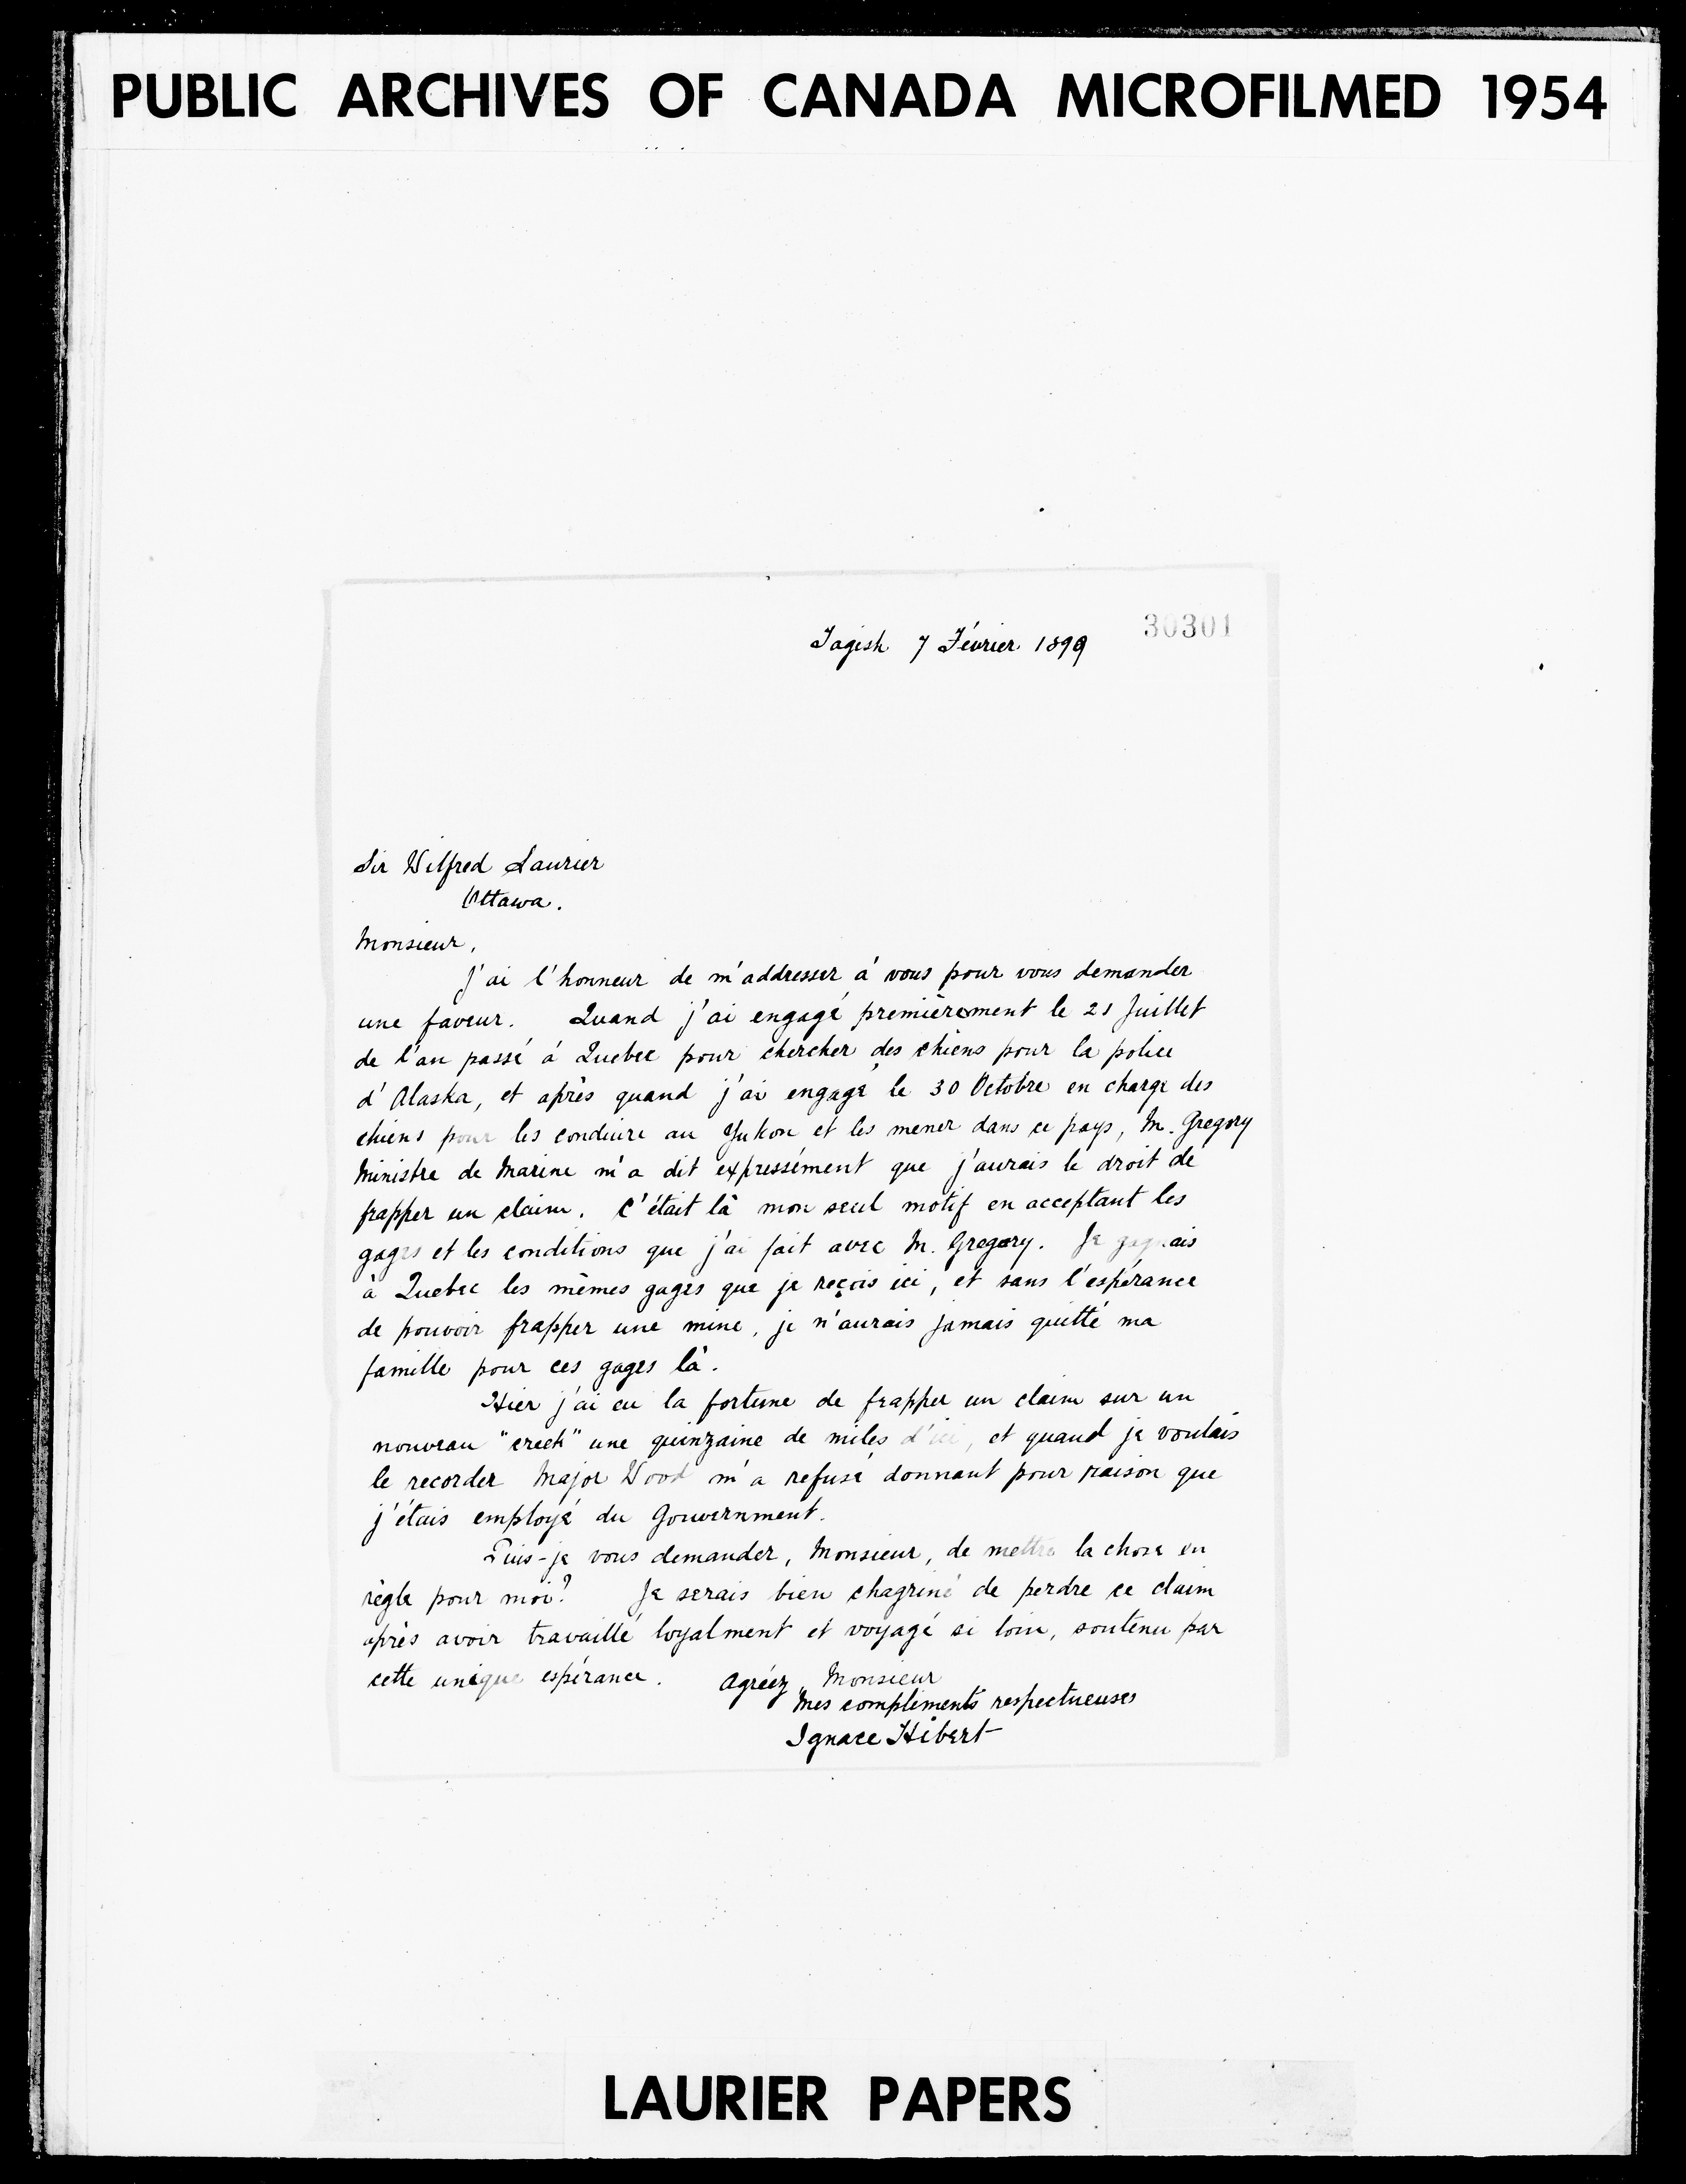 PUBLIC ARCHIVES OF CANADA MICROFILMED 1954
30301
Tagish 7 Février 1899
Sir Wilfred Laurier
Ottawa.
Monsieur,
J'ai l'honneur de m'addresser à vous pour vous demander
une faveur. Quand j'ai engagé premièrement le 21 Juillet
de l'an passé à Quebec pour chercher des chiens pour la police
d'Alaska, et après quand j'ai engagé le 30 Octobre en charge des
chiens pour les conduire au Yukon et les mener dans ce pays, M. Gregory
Ministre de Marine m'a dit expressément que j'aurais le droit de
frapper un claim. C'était là mon seul motif en acceptant les
gages et les conditions que j'ai fait avec M. Gregory. Je gagnais
à Quebec les mêmes gages que je reçois ici, et sans l'espérance
de pouvoir frapper une mine, je n'aurais jamais quitté ma
famille pour ces gages là.
Hier j'ai eu la fortune de frapper un claim sur un
nouveau "creek" une quinzaine de miles d'ici, et quand je voulais
le recorder Major Wood m'a refusé donnant pour raison que
j'étais employé du Gouvernment.
Puis-je vous demander, Monsieur, de mettre la chose en
règle pour moi? Je serais bien chagriné de perdre ce claim
après avoir travaillé loyalment et voyagé si loin, soutenu par
cette unique espérance. Agréez, Monsieur
Mes compliments respectueuses
Ignace Hibert
LAURIER PAPERS